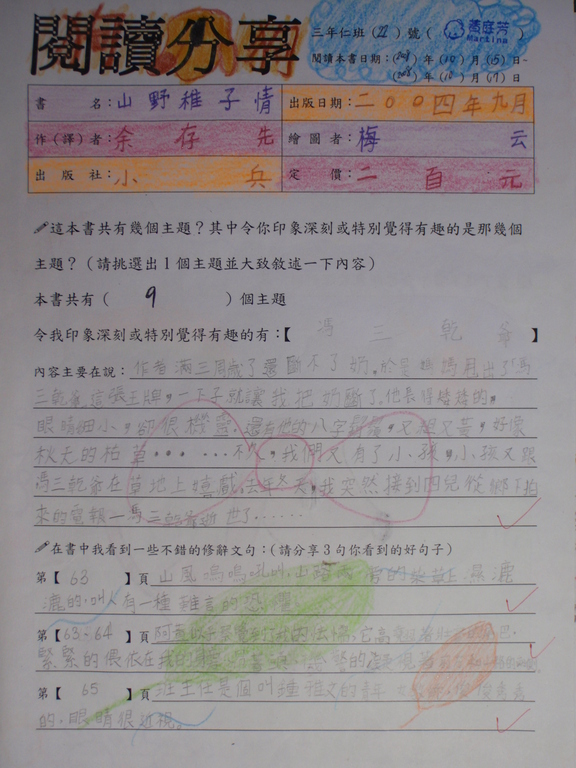 閱讀分享
三年仁班(22)號(黃庭芳 Martina)
閱讀本書日期:(2008)年(10)月(15)日~
(2008)年(10)月(17)日
書 名:山野稚子情 出版日期:二○○四年九月
作(譯)者:余存先 繪圖者:梅云
出版社:小兵 定價:二百元
這本書共有幾個主題?其中令你印象深刻或特別覺得有趣的是那幾個
主題?(請挑選出1個主題並大致敘述一下內容)
本書共有( 9 )個主題
令我印象深刻或特別覺得有趣的有:【馮三乾爺】
內容主要在說:作者滿三周歲了還斷不了奶,於是媽用出了馮
三乾爺這張王牌,一下子就讓我把奶斷了,他長得矮矮的,
眼睛細小,卻很機靈,還有他的八字鬍鬚,又細又黃,好像
秋天的枯草……不久,我們又有了小孩,小孩又跟
馮三乾爺在草地上嬉戲,去年冬天,我突然接到四兒從鄉下拍
來的電報—馮三乾爺逝世了……
在書中我看到一些不錯的修辭文句:(請分享3句你看到的好句子)
第【63】頁 山風嗚嗚吼叫,山路兩旁的 濕漉
漉的,叫人有一種難言的恐懼。
第【63-64】頁 阿黃 它高
緊緊的偎依在我的身
第【65】頁 班主任是個叫鍾祖文的青年
的,眼睛很近視。